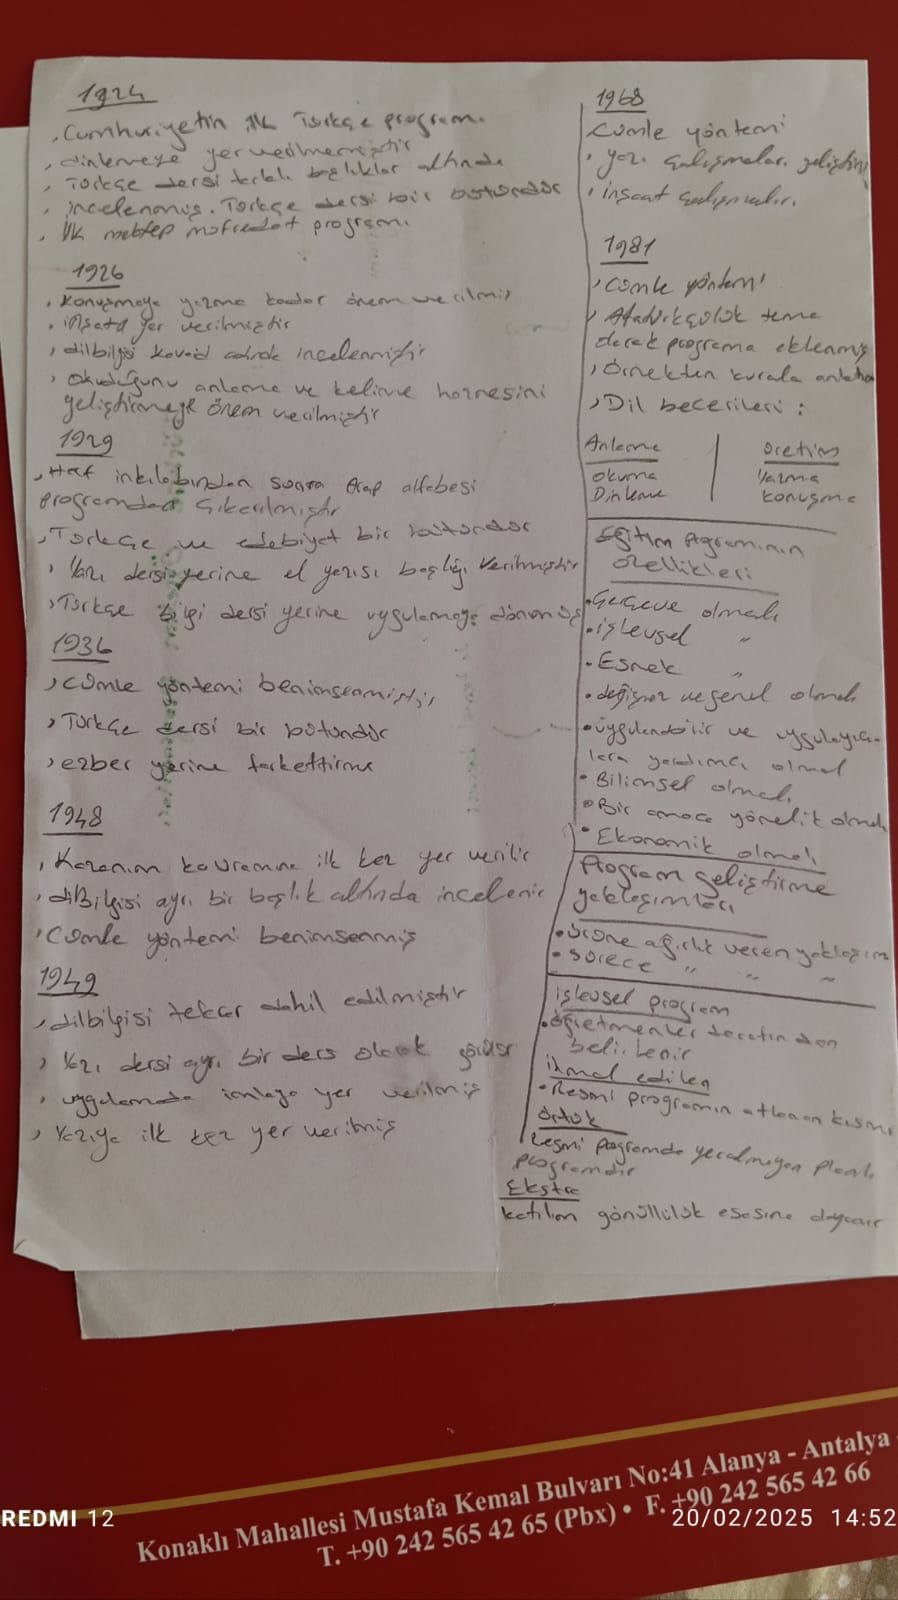 1924
, Cumhuriyetin ilk Türkçe programı.
, dinlemeye yer verilmemiştir
, Türkçe dersi farklı başlıklar altında
, incelenmiş. Türkçe dersi bir bütündür
. ilk mektep müfredat programı
1926
. Konuşmaya yazma kadar önem verilmiş
. inşata yer verilmiştir
, dilbilgisi kavaid adında incelenmiştir
, okuduğunu anlama ve kelime haznesini
geliştirmeye önem verilmiştir
1929
, Harf inkılabından sonra Arap alfebesi
programdan çıkarılmıştır
, Türkçe ve edebiyat bir bütündür
, Yazı dersi yerine el yazısı başlığı verilmiştir
, Türkçe bilgi dersi yerine uygulamaya dönmüş
1936
, cümle yöntemi benimsenmiştir
, Türkçe dersi bir bütündür
, ezber yerine farkettirme
1948
, Kazanım kavramına ilk kez yer verilir
, dilBilgisi ayrı bir başlık altında incelenir
, Cümle yöntemi benimsenmiş
1949
, dilbilgisi tekrar dahil edilmiştir
, Yazı dersi ayrı bir ders olarak görülür
, uygulamada imlaya yer verilmiş
, Yazıya ilk kez yer verilmiş
1968
, cümle yöntemi
, yazı çalışmaları geliştirm
, inşaat çalışmaları.
1981
, cümle yöntemi
, Atatürkçülük tema
olarak programa eklenmiş
, Örnekten kurala anlatım
, Dil becerileri :
Anlama | Üretim
Okuma | Yazma
Dinleme | Konuşma
Eğitim Programının
özellikleri
. Çerçeve olmalı
. işlevsel "
. Esnek "
. değişmez ve genel olmalı
. uygulanabilir ve uygulayıcı-
lara yardımcı olmalı
. Bilimsel olmalı
. Bir amaca yönelik olmalı
. Ekonomik olmalı
Program Geliştirme
yaklaşımları
. Ürüne ağırlık veren yaklaşım
. Sürece " " "
işlevsel program
. öğretmenler tarafından
belirlenir
ihmal edilen
. Resmi programın atlanan kısmı
örtük
Resmi programda yer almayan planlı
programdır
Ekstra
katılım gönüllülük esasına dayanır
Konaklı Mahallesi Mustafa Kemal Bulvarı No:41 Alanya - Antalya
T. +90 242 565 42 65 (Pbx) • F. +90 242 565 42 66
REDMI 12
20/02/2025 14:52